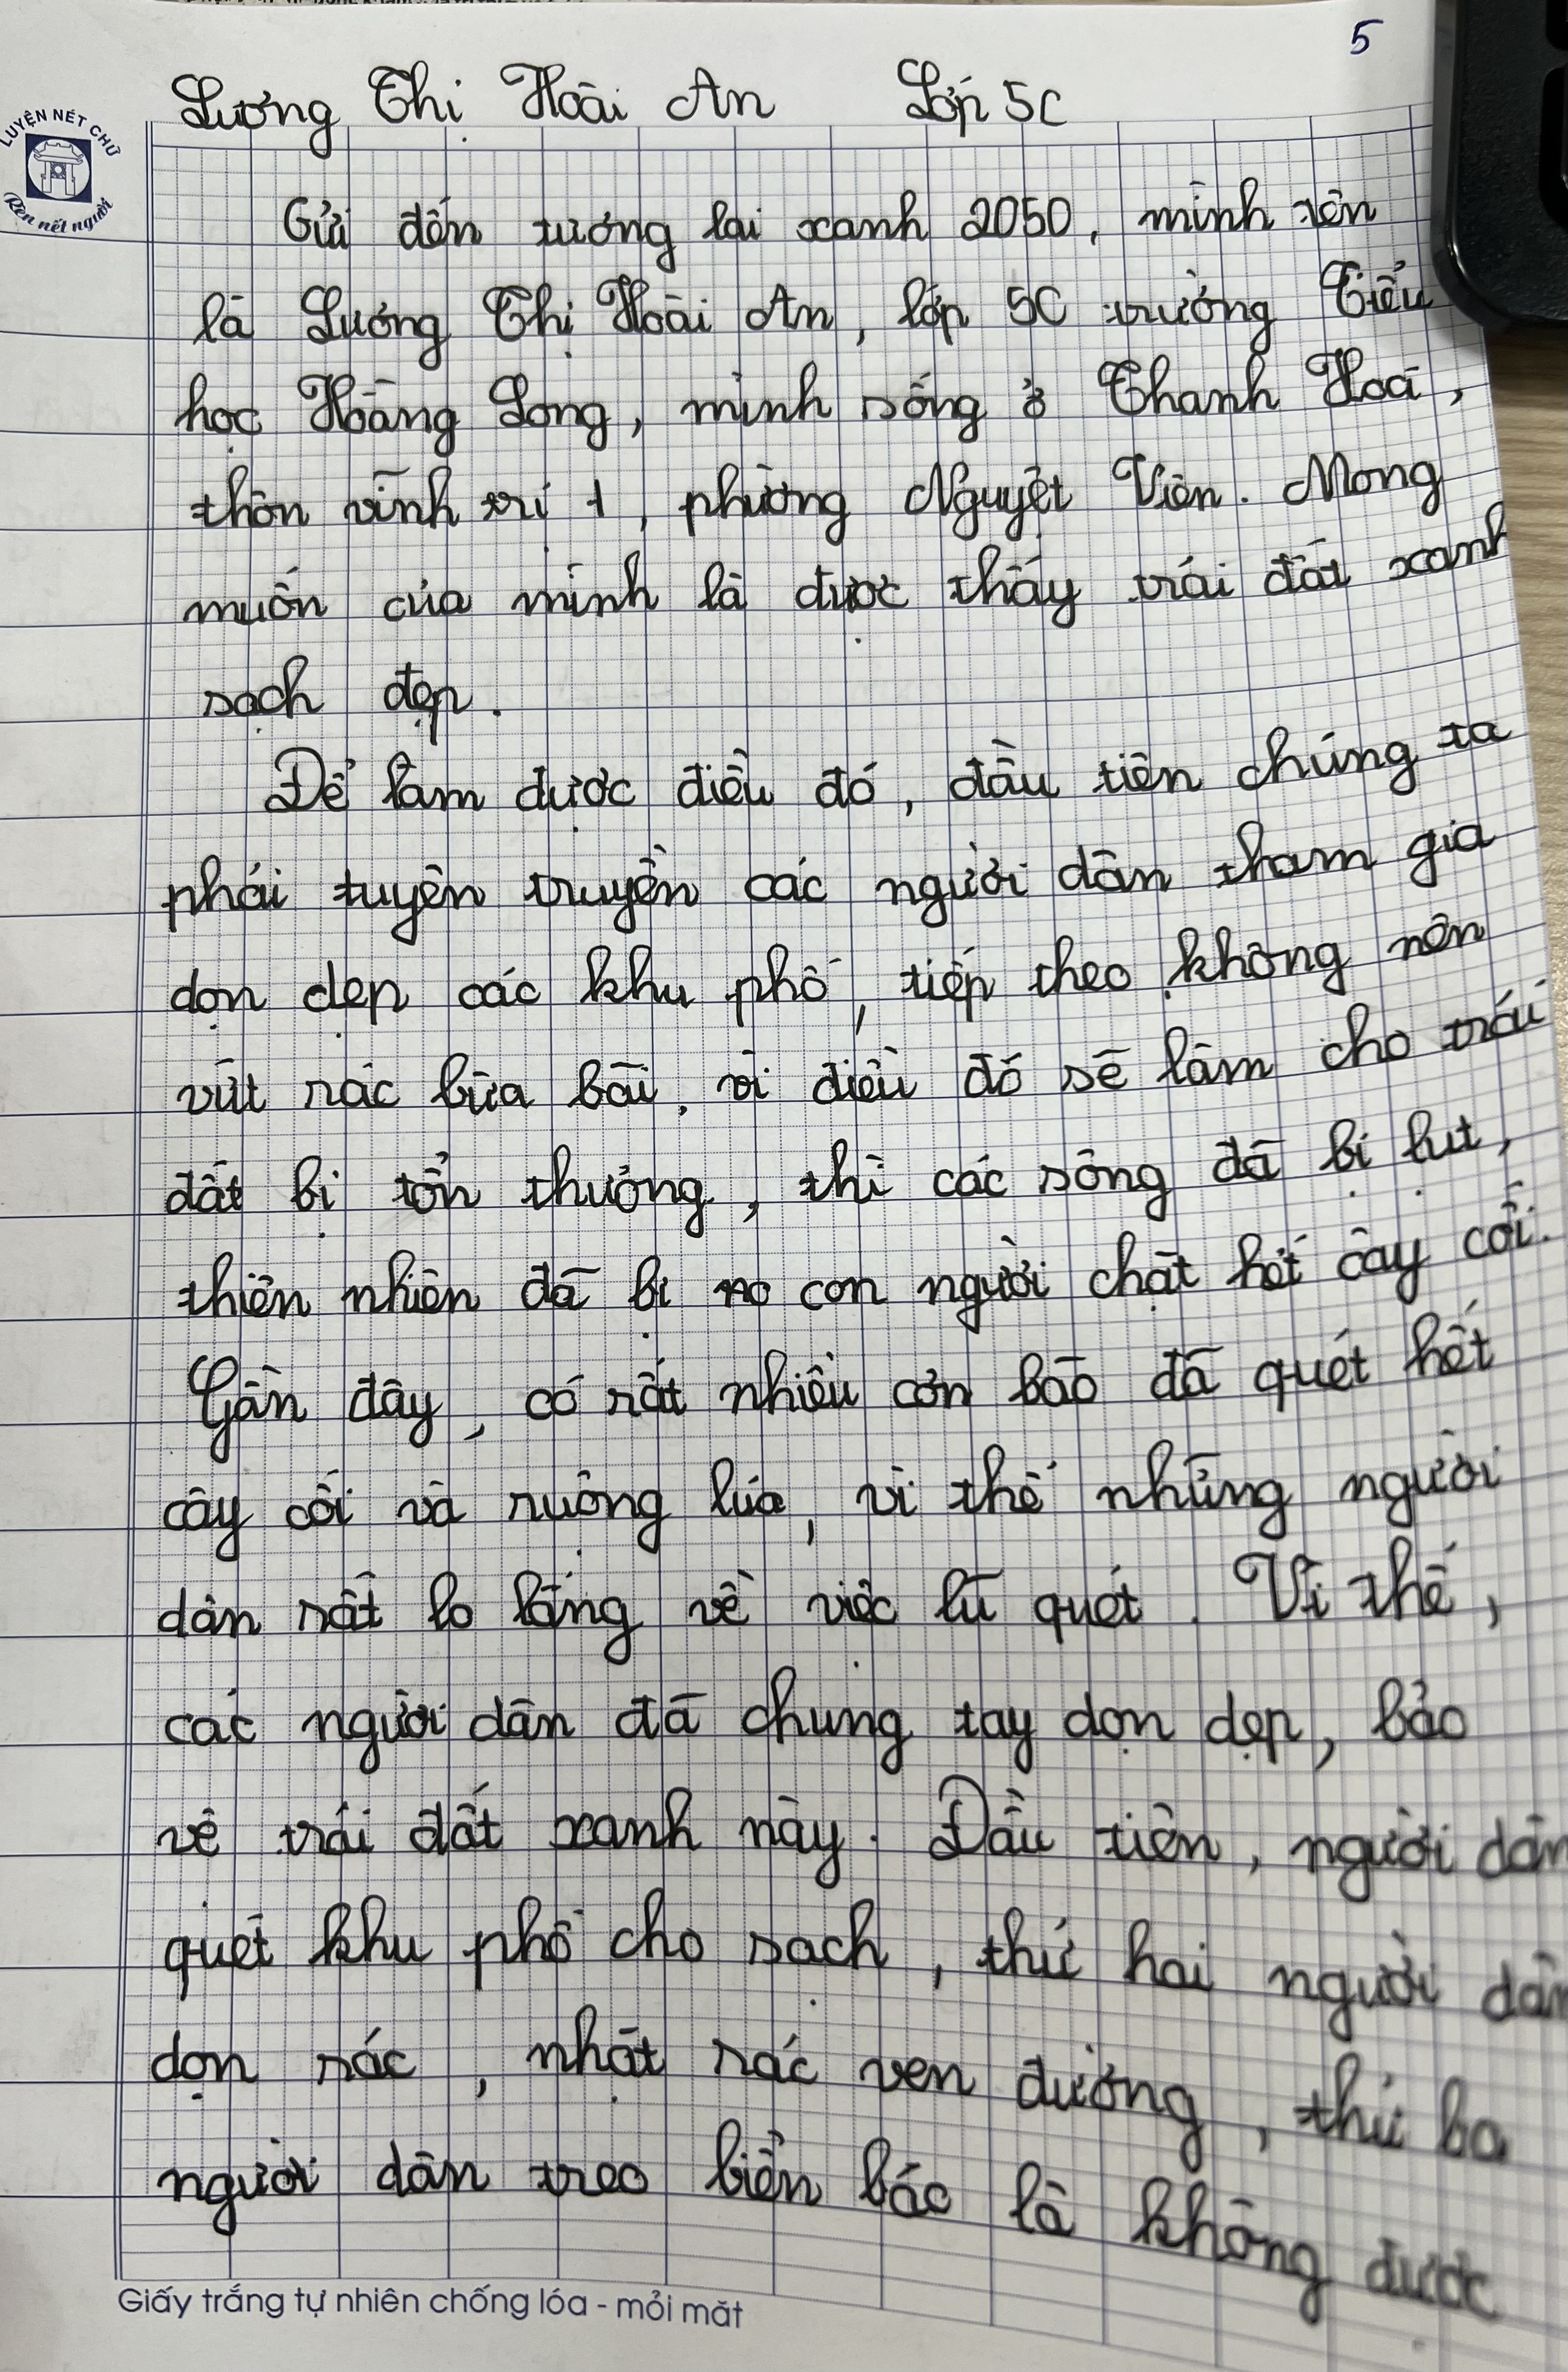 5
Lương Thị Hoài An Lớp 5C
LUYỆN NÉT CHỮ
Rèn nết người
Gửi đến tương lai xanh 2050, mình tên
là Lương Thị Hoài An, lớp 5C trường Tiểu
học Hoằng Long, mình sống ở Thanh Hoá,
thôn vĩnh trí 1, phường Nguyệt Viên. Mong
muốn của mình là được thấy trái đất xanh
sạch đẹp.
Để làm được điều đó, đầu tiên chúng ta
phải tuyên truyền các người dân tham gia
dọn dẹp các khu phố, tiếp theo không nên
vứt rác bừa bãi, vì điều đó sẽ làm cho trái
đất bị tổn thương, thì các sông đã bị lụt,
thiên nhiên đã bị no con người chặt hết cây cối.
Gần đây, có rất nhiều cơn bão đã quét hết
cây cối và ruộng lúa, vì thế những người
dân rất lo lắng về việc lũ quét. Vì thế,
các người dân đã chung tay dọn dẹp, bảo
vệ trái đất xanh này. Đầu tiên, người dân
quét khu phố cho sạch, thứ hai người dân
dọn rác, nhặt rác ven đường, thứ ba
người dân treo biển báo là không được
Giấy trắng tự nhiên chống lóa - mỏi mắt